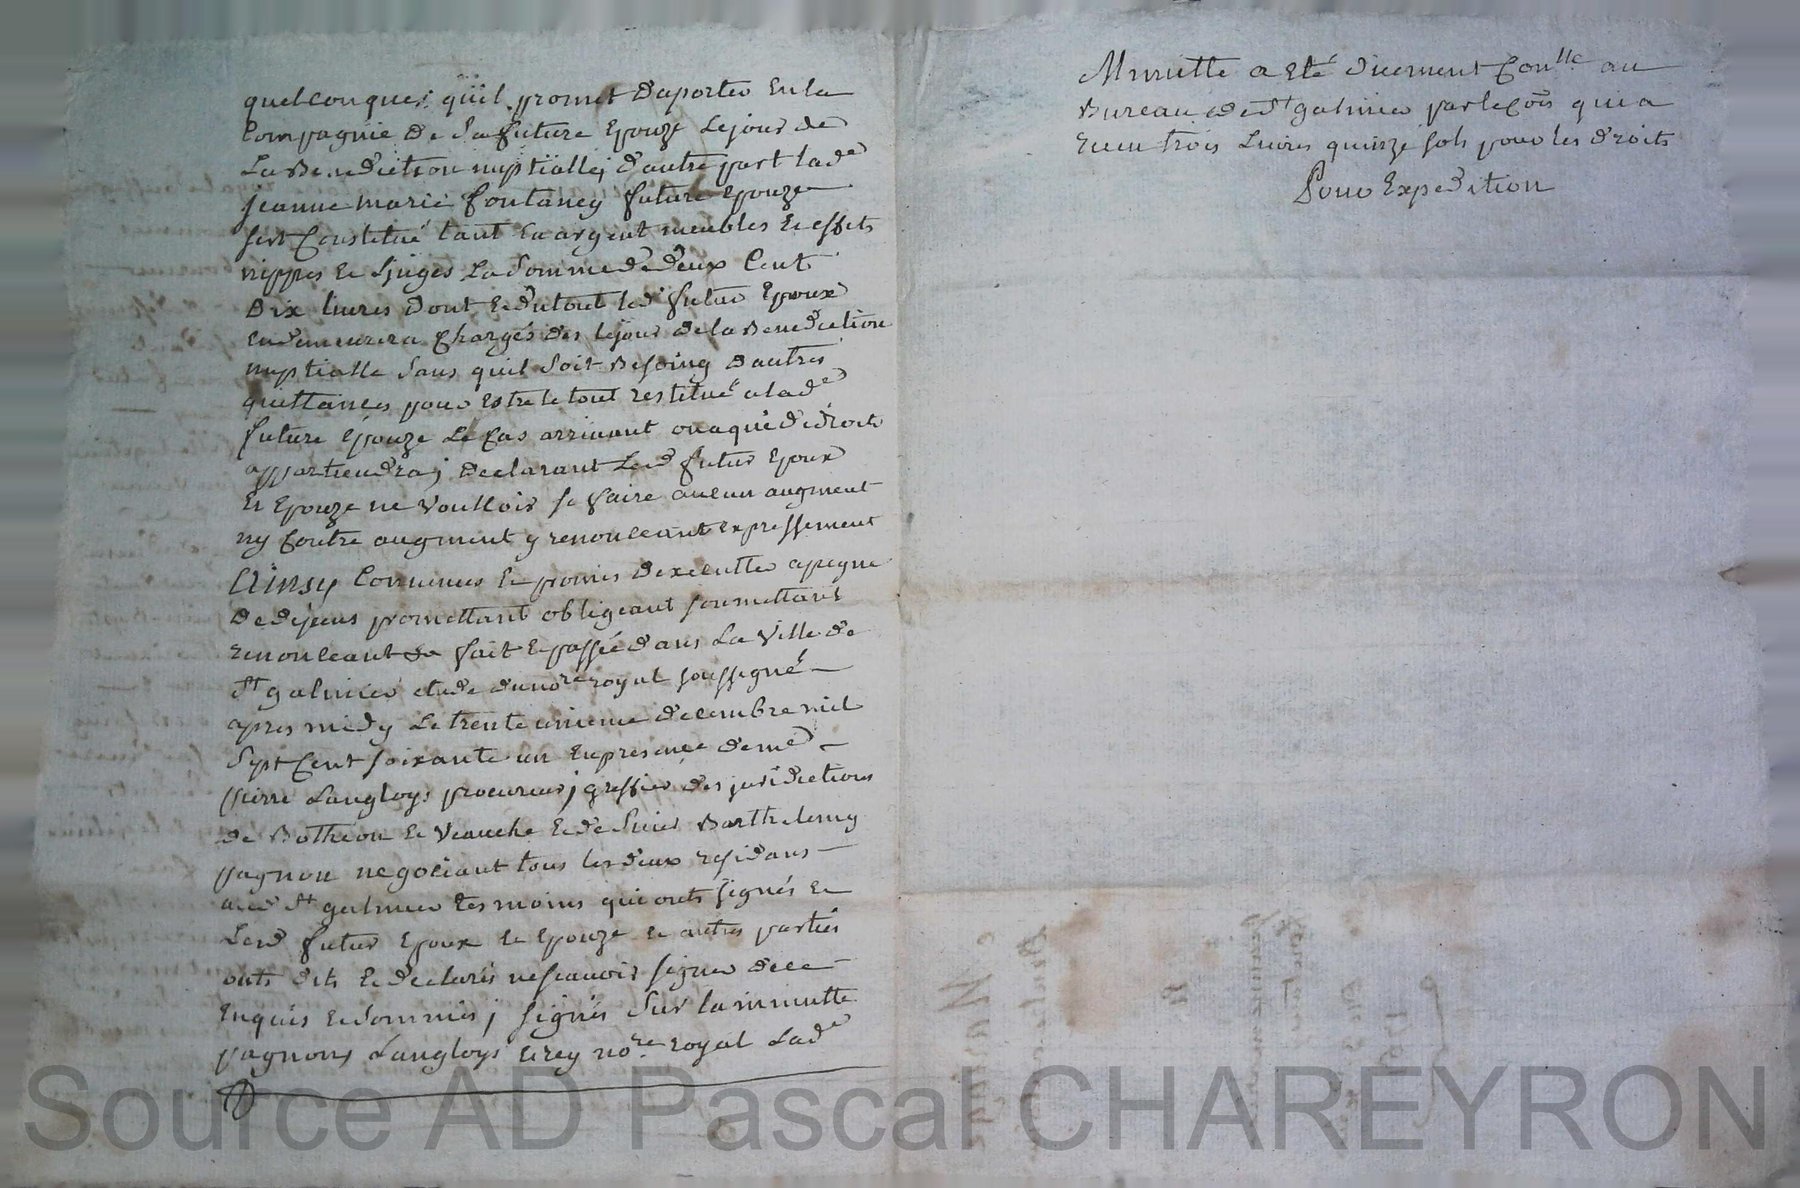 quelconques quil promet d'aporter En la
Compagnie De Sa future Epouze Le jour de
La Benediction nuptialle; d'autre part lade
jeanne marie fontaney future Epouze
sest Constitué tant En argent meubles Et effets
nippes Et linges La Somme de deux Cent
Dix livres Dont Et du tout led futur Epoux
En demeurera Chargés des le jour de la Benediction
nuptialle Sans quil Soit Besoing D'autres
quittances pour Estre le tout restitué a lade
future Epouze Le Cas arrivant ou a qui de droit
appartiendra; Declarant Led futur Epoux
Et Epouze ne Voulloir se faire aucun augment
ny Contre augment y renonceant expressement
Ainsy Convenus Et promis D'executter a peyne
De depens promettant obligeant soumettant
renonceant fait Et passé dans La Ville de
St galmier etude du nore royal soussigné
apres midy Le trente unieme decembre mil
Sept Cent soixante un En presence de me
pierre Langloys procureur; greffier des jurisdictions
de Botheon Et Veauche Et de Sieur Barthelemy
pagnon negociant tous les deux residans
aud St galmier tesmoins qui onts signés Et
Led futur Epoux Et Epouze Et autres parties
onts dits Et declarés ne scavoir signer de ce
Enquis Et sommés; signés Sur la minutte
pagnon, Langloys Et rey nore royal Lade
Minutte a Eté duement Conllé au
Bureau de St galmier par le Cois qui a
recu trois Livres quinze sols pour les droits
Pour Expedition
Source AD Pascal CHAREYRON